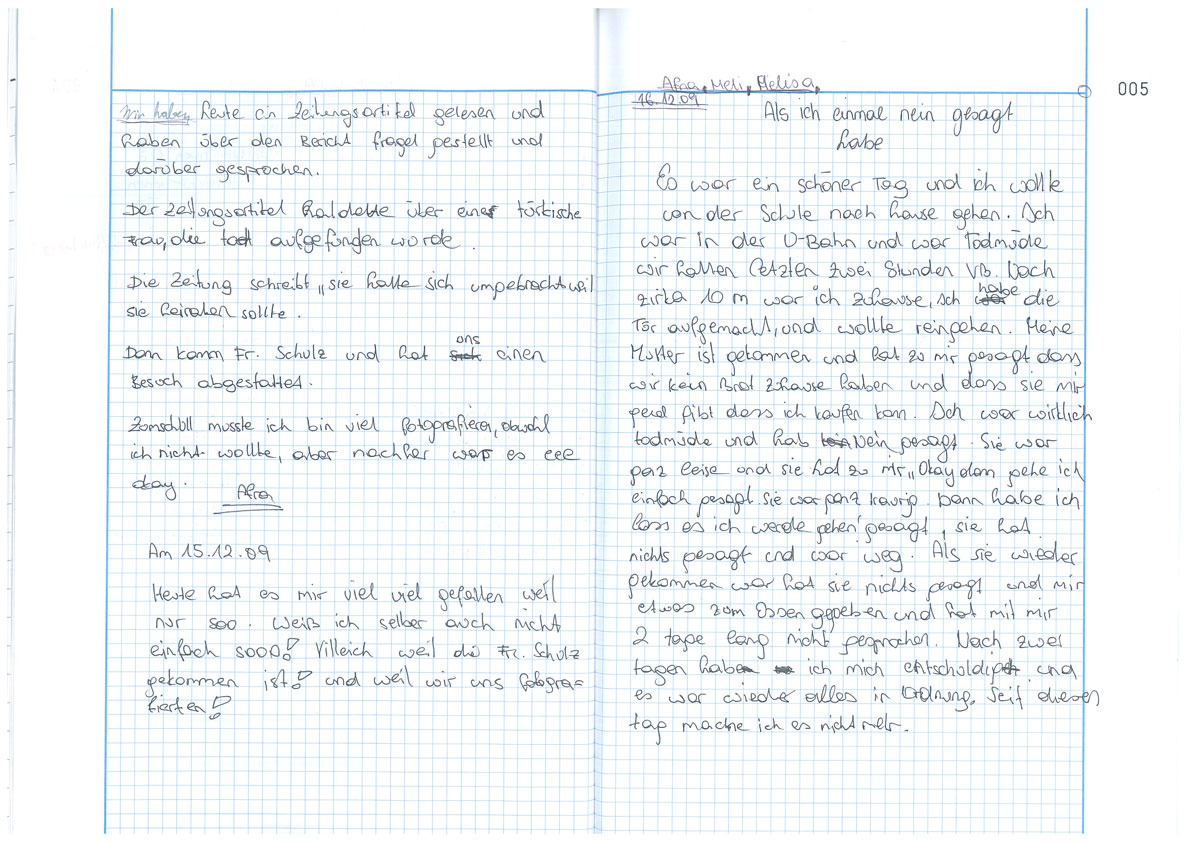 Wir haben heute ein Zeitungsartikel gelesen und
haben über den Bericht fragel gestellt und
darüber gesprochen.
Der Zeitungsartikel handelte über eine türkische
Frau, die tod aufgefunden wurde.
Die Zeitung schreibt „sie hatte sich umgebracht weil
sie heiraten sollte.
Dann kamm Fr. Schulz und hat uns einen
Besuch abgestattet.
Zumschlull musste ich bin viel fotografieren, obwohl
ich nicht wollte, aber nachher war es
okay.
Afra
Am 15.12.09
Heute hat es mir viel viel gefallen weil
nur soo. Weiß ich selber auch nicht
einfach sooo! Villeich weil die Fr. Schulz
gekommen ist! und weil wir uns fotogra=
fierten!
Afra, Meli, Melisa,
16.12.09
005
Als ich einmal nein gesagt
habe
Es war ein schöner Tag und ich wollte
von der Schule nach hause gehen. Ich
war in der U-Bahn und war Todmüde
wir hatten letzten zwei Stunden VB. Nach
zirka 10 m war ich zuhause, ich habe die
Tür aufgemacht, und wollte reingehen. Meine
Mutter ist gekommen und hat zu mir gesagt dass
wir kein Brot zuhause haben und dass sie mir
geld gibt dass ich kaufen kan. Ich war wirklich
todmüde und hab Nein gesagt. Sie war
ganz leise und sie hat zu mir „Okay dan gehe ich
einfach gesagt. Sie war ganz traurig. Dann habe ich
lass es ich werde gehen" gesagt, sie hat
nichts gesagt und war weg. Als sie wieder
gekommen war hat sie nichts gesagt und mir
etwas zum Essen gegeben und hat mit mir
2 tage lang nicht gesprochen. Nach zwei
tagen habe ich mich entschuldigt und
es war wieder alles in Ordnung. Seit diesen
tag mache ich es nicht mehr.